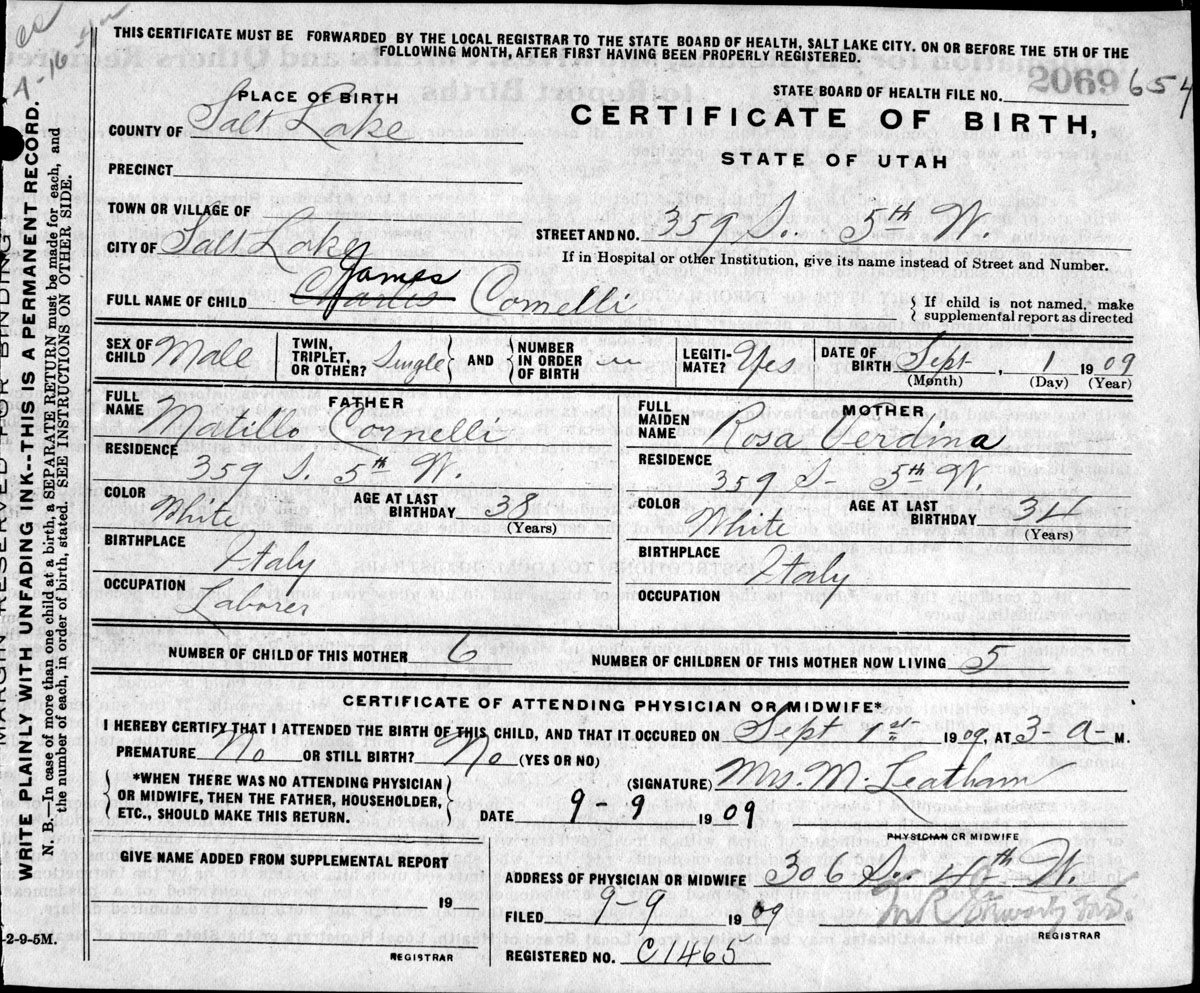 THIS CERTIFICATE MUST BE FORWARDED BY THE LOCAL REGISTRAR TO THE STATE BOARD OF HEALTH, SALT LAKE CITY. ON OR BEFORE THE 5TH OF THE
FOLLOWING MONTH, AFTER FIRST HAVING BEEN PROPERLY REGISTERED.
A-16
STATE BOARD OF HEALTH FILE NO. 2069 654
PLACE OF BIRTH
CERTIFICATE OF BIRTH,
STATE OF UTAH
COUNTY OF Salt Lake
PRECINCT
TOWN OR VILLAGE OF
CITY OF Salt Lake
STREET AND NO. 359 S. 5th W.
If in Hospital or other Institution, give its name instead of Street and Number.
James
FULL NAME OF CHILD Charles Cornelli
{ If child is not named, make
supplemental report as directed
SEX OF CHILD Male
TWIN, TRIPLET, OR OTHER? Single
AND
NUMBER IN ORDER OF BIRTH
LEGITIMATE? Yes
DATE OF BIRTH Sept, 1 1909
(Month) (Day) (Year)
FATHER
FULL NAME Matillo Cornelli
RESIDENCE 359 S. 5th W.
COLOR White
AGE AT LAST BIRTHDAY 38
(Years)
BIRTHPLACE Italy
OCCUPATION Laborer
MOTHER
FULL MAIDEN NAME Rosa Verdina
RESIDENCE 359 S- 5th W.
COLOR White
AGE AT LAST BIRTHDAY 34
(Years)
BIRTHPLACE Italy
OCCUPATION
NUMBER OF CHILD OF THIS MOTHER 6
NUMBER OF CHILDREN OF THIS MOTHER NOW LIVING 5
CERTIFICATE OF ATTENDING PHYSICIAN OR MIDWIFE*
I HEREBY CERTIFY THAT I ATTENDED THE BIRTH OF THIS CHILD, AND THAT IT OCCURED ON Sept 1st 1909, AT 3-A-M.
PREMATURE No OR STILL BIRTH? No (YES OR NO)
{ *WHEN THERE WAS NO ATTENDING PHYSICIAN
OR MIDWIFE, THEN THE FATHER, HOUSEHOLDER,
ETC., SHOULD MAKE THIS RETURN. }
(SIGNATURE) Mrs. M. Leatham
DATE 9-9 1909
PHYSICIAN OR MIDWIFE
GIVE NAME ADDED FROM SUPPLEMENTAL REPORT
19
REGISTRAR
ADDRESS OF PHYSICIAN OR MIDWIFE 306 S. 4th W.
FILED 9-9 1909
REGISTRAR
REGISTERED NO. C1465
-2-9-5M.
MARGIN RESERVED FOR BINDING
WRITE PLAINLY WITH UNFADING INK--THIS IS A PERMANENT RECORD.
N. B.—In case of more than one child at a birth, a SEPARATE RETURN must be made for each, and
the number of each, in order of birth, stated. SEE INSTRUCTIONS ON OTHER SIDE.